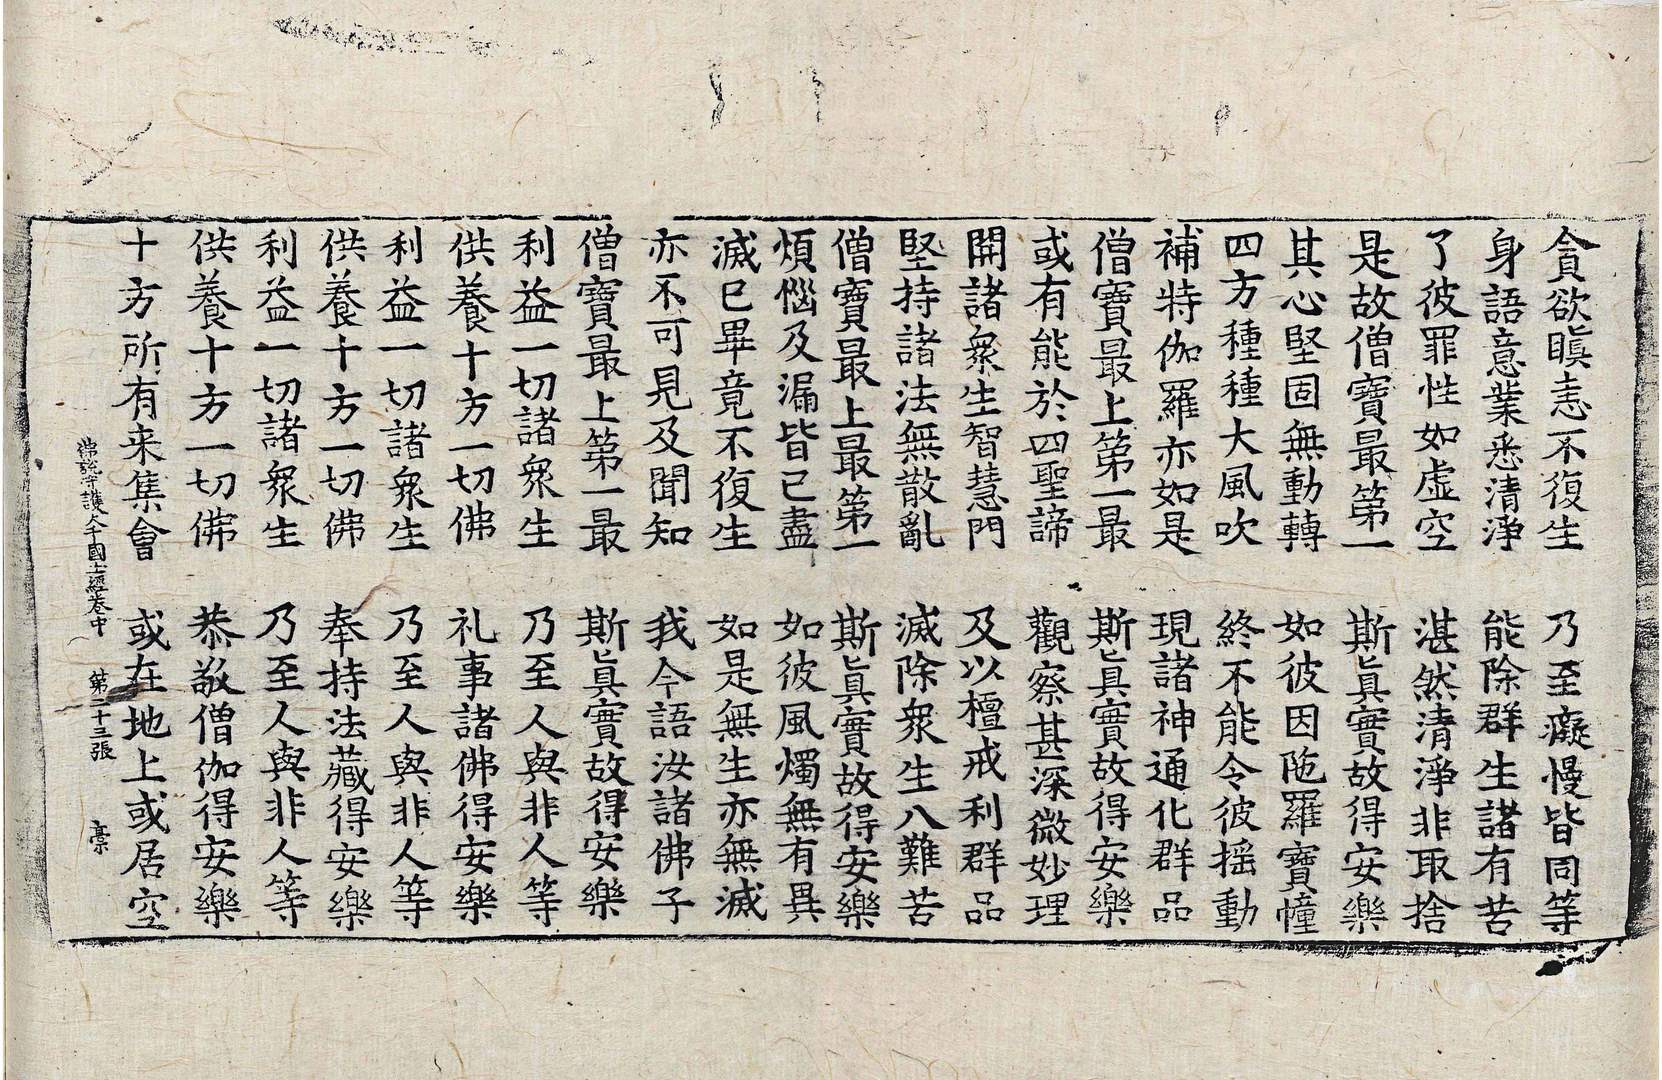 貪欲瞋恚不復生　乃至癡慢皆同等
身語意業悉清淨　能除群生諸有苦
了彼罪性如虛空　湛然清淨非取捨
是故僧寶最第一　斯眞實故得安樂
其心堅固無動轉　如彼因陁羅寶幢
四方種種大風吹　終不能令彼揺動
補特伽羅亦如是　現諸神通化群品
僧寶最上第一最　斯眞實故得安樂
或有能於四聖諦　觀察甚深微妙理
開諸衆生智慧門　及以檀戒利群品
堅持諸法無散亂　滅除衆生八難苦
僧寶最上最第一　斯眞實故得安樂
煩惱及漏皆已盡　如彼風燭無有異
滅已畢竟不復生　如是無生亦無滅
亦不可見及聞知　我今語汝諸佛子
僧寶最上第一最　斯眞實故得安樂
利益一切諸衆生　乃至人與非人等
供養十方一切佛　礼事諸佛得安樂
利益一切諸衆生　乃至人與非人等
供養十方一切佛　奉持法藏得安樂
利益一切諸衆生　乃至人與非人等
供養十方一切佛　恭敬僧伽得安樂
十方所有来集會　或在地上或居空
佛說守護大千國土經卷中　第二十三張　槀